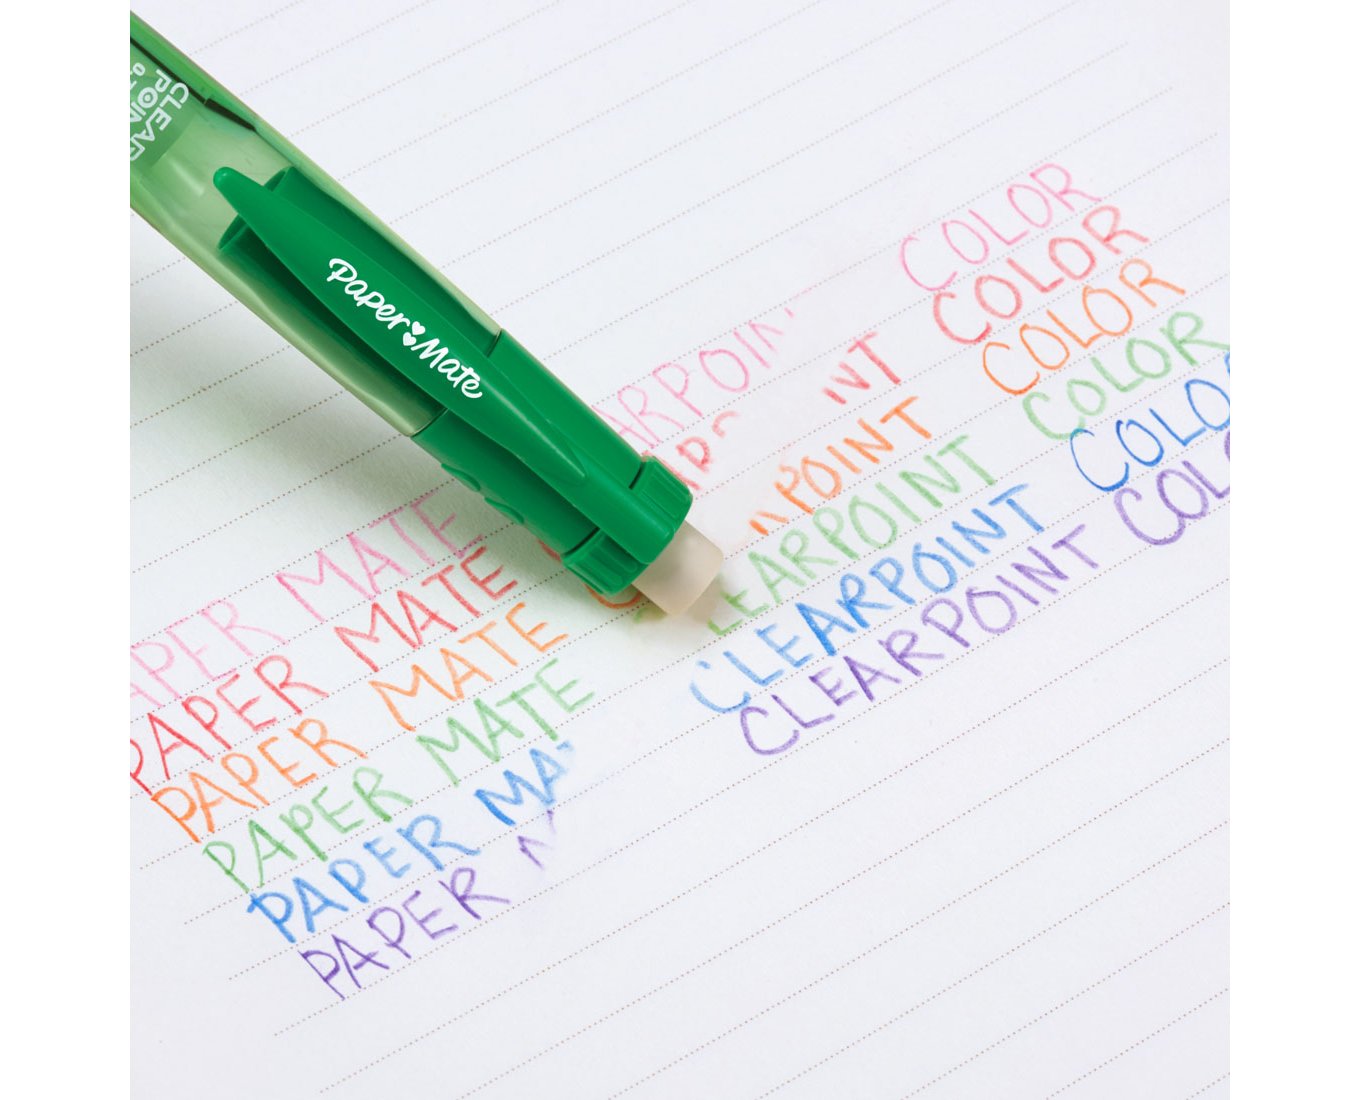 CLEAR
POINT
0.7
Paper Mate
APER MATE ARPOIN COLOR
PAPER MATE ARP INT COLOR
PAPER MATE POINT COLOR
PAPER MATE LEARPOINT COLOR
PAPER MA CLEARPOINT COLO
PAPER CLEARPOINT COL